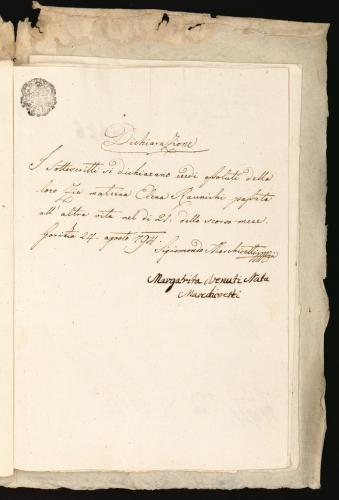 Dichiarazione
I Sottoscritti si dichiarano eredi assoluti della
loro Zia materna Elena Raunich passata
all' altra vita nel dì 21. dello scorso mese.
Gorizia 24. agosto 794.
Sigismondo Marchisetti
Margarita Venuti Nata
Marchisetti